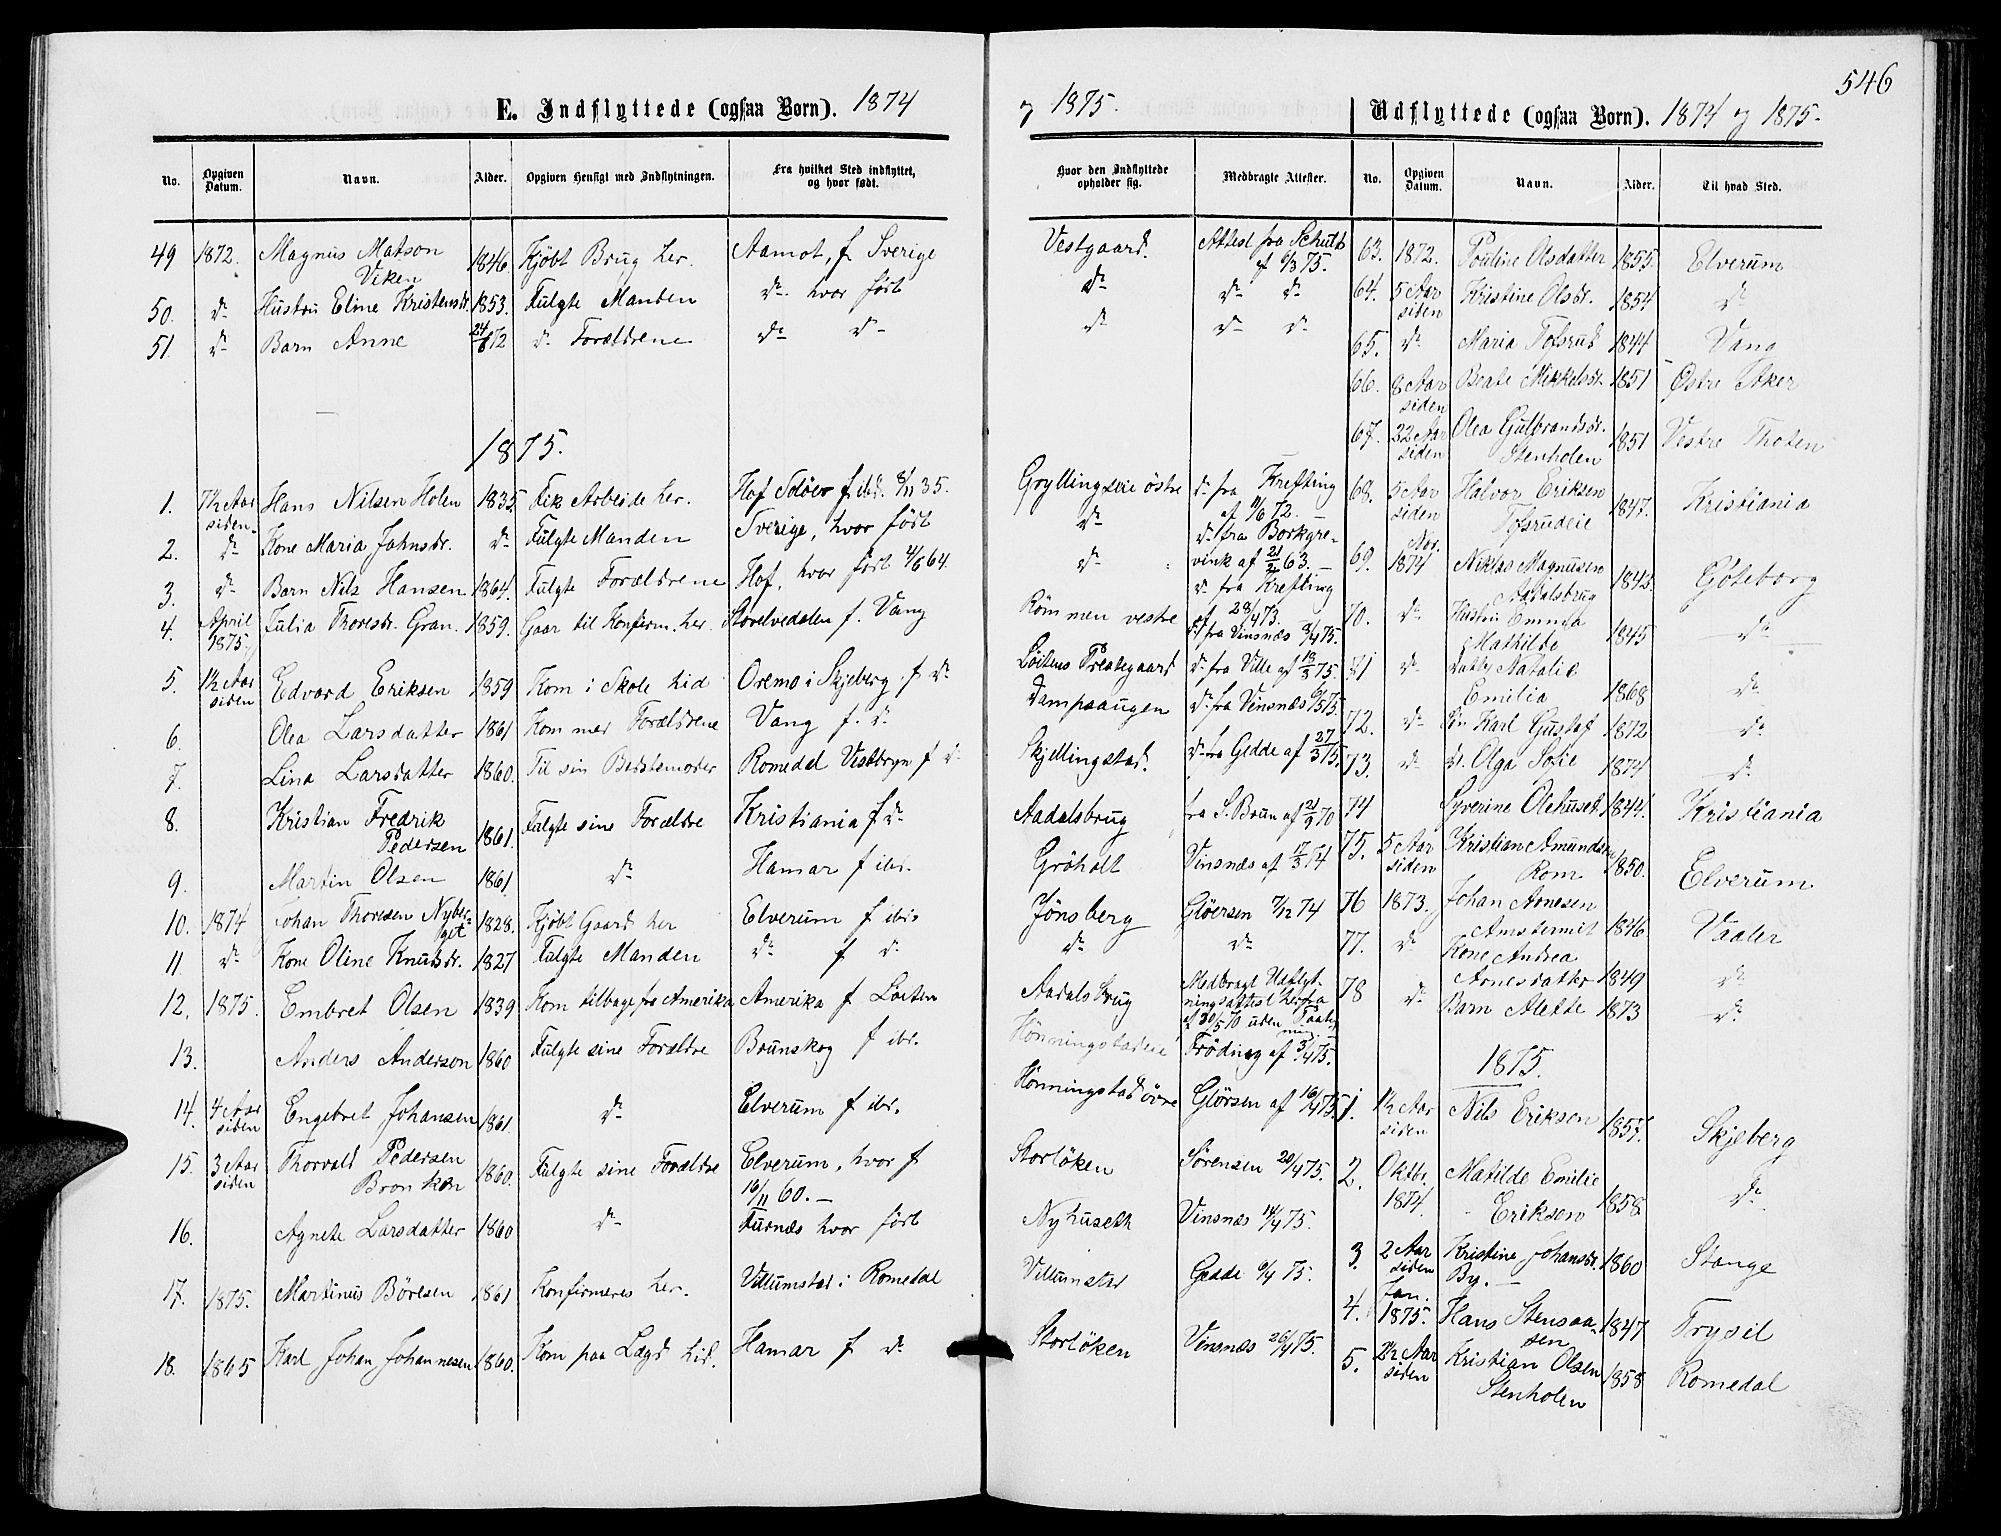 546
E. Indflyttede (ogsaa Børn). 1874
No.
Opgiven Datum.
Navn.
Alder.
Opgiven Hensigt med Indflytningen.
Fra hvilket Sted indflyttet, og hvor født.
49 1872. Magnus Matson 1846 Kjøbt Brug her. Aamot, f. Sverige
Viken
50. do Hustru Eline Kristensdr. 1853. Fulgte Manden do hvor født
51. do Barn Anne 24/8 72 do Forældrene do do
1875.
1. 7½ Aar Hans Nilsen Holen 1835. Fik Arbeide her. Hof Solöer f. ibd. 8/11 35.
siden
2. do Kone Maria Jahnsdr. do Fulgte Manden Sverige, hvor født
3. do Barn Nils Hansen 1864. Fulgte Forældrene Hof, hvor født 4/6 64.
4. April Julia Thoresdr. Gran. 1859. Gaar til Konfirm. her. Stavelvedalen f. Vang
1875.
5. 1½ Aar Edvard Eriksen 1859 Kom i Skole hid Oremo i Skjeberg f do
siden
6. Olea Larsdatter 1861 Kom med Forældrene Vang f. do
7. Lina Larsdatter 1860. Til sin Bedstemoder Romedal Vestbryn f do
8. Kristian Fredrik 1861. Fulgte sine Forældre Kristiania f do
Pedersen
9. Martin Olsen 1861 do Hamar f ibd.
10. 1874 Johan Thoresen Nyber- 1828. Kjøbt Gaard her Elverum f ibd.
get
11. do Kone Oline Knudsdr. 1827 Fulgte Manden do f do
12. 1875. Embret Olsen 1839 Kom tilbage fra Amerika Amerika f Løiten
13. Anders Anderson 1860 Fulgte sine Forældre Brunskog f ibd.
14. 4 Aar Engebret Johansen 1861. do Elverum f ibd.
siden
15. 3 Aar Thorvald Pedersen 1860. Fulgte sine Forældre Elverum, hvor f
siden Bronken 16/11 60. —
16. Agnete Larsdatter 1860 do Furnæs hvor født
17. 1875. Martinus Böresen 1861 Konfirmeres her. Villumstad i Romedal
18. 1865 Karl Johan Johannesen 1860. Kom paa Lægd hid. Hamar f do
og 1875.
Hvor den Indflyttede opholder sig.
Medbragte Attester.
Vestgaard. Attest fra Schult
af 6/3 75.
do do do
do do do
Gryllingseie østre do fra Krefting
af 11/6 72. —
do do fra Borkgre-
do vink af 21/ 63. —
do fra Krefting
Römmen vestre af 28/4 73. —
do fra Vinsnæs 8/4 75.
Løitens Prestegaard do fra Ville af 13/3 75.
Dampsaugen do fra Vinsnæs 6/5 75
Skjellingstad. do fra Gedde af 27/3 75.
Aadalsbrug fra S. Brun af 21/9 70
Gröholt Vinsnæs af 17/3 74
Jönsberg Glöersen 7/12 74
do do
Aadalsbrug Medbragt Udflyt-
ningsattest herfra
af 30/5 70 uden Paateg-
ning. —
Hönningstadeie Fröding af 3/4 75.
Hönningstad övre Glörsen af 16/4 75.
Storlöken Sörensen 20/4 75.
Nyhuseth Vinsnæs 14/4 75.
Villumstad Gedde 9/4 75.
Storlöken Vinsnæs 26/4 75.
Udflyttede (ogsaa Børn). 1874 og 1875.
No.
Opgiven Datum.
Navn.
Alder.
Til hvad Sted.
63. 1872. Pouline Olsdatter 1855. Elverum
64. 5 Aar Kristine Olsdr. 1854 do
siden
65. do Maria Tofsrud 1844 Vang
66. 8 Aar Beate Mikkelsdr. 1851 Østre Aker
siden
67. 22 Aar Olea Gulbrandsdr. 1851 Vestre Thoten
siden Stenholen
68. 5 Aar Halvor Eriksen 1847. Kristiania
siden Tofsrudeie
Nov.
69. 1874 Niklas Magnusen 1842 Göteborg
Aadalsbrug
70. do Hustru Emma 1845 do
Mathilde
71 do datter Natalie
Emilia 1868 do
72. do Søn Karl Gustaf 1872 do
73. do dr. Olga Sofie 1874 do
74 Syverine Olehuset. 1844. Kristiania
75. 5 Aar Kristian Amundsen 1850. Elverum
siden Rom
76 1873. Johan Arnesen
Amstermit 1846 Vaaler
77. do Kone Andrea
Arnesdatter 1849 do
78 do Barn Alette 1873 do
1875.
1. 1½ Aar Nils Eriksen 1857. Skjeberg
siden
2. Oktbr. Matilde Emilie
1874. Eriksen 1858 do
3. 2 Aar Kristine Johansdr. 1860 Stange
siden By. —
4. Jan.
1875. Hans Stensaa- 1847 Trysil
sen
5. 2½ Aar Kristian Olsen 1858 Romedal
siden Stenholen